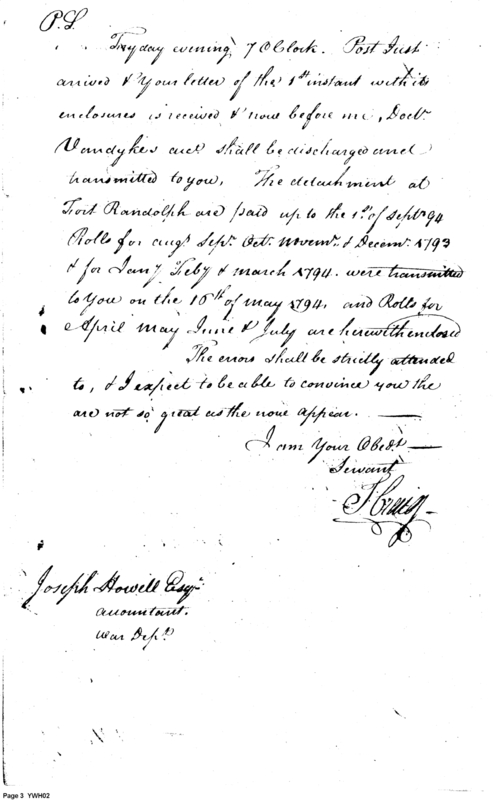 P.S.
Fryday evening 7 OClock. Post Just
arrived & Your letter of the 1st instant with its
enclosures is received & now before me, Doctr
Vandykes acct shall be discharged and
transmitted to you. The detachment at
Fort Randolph are paid up to the 1st of Septr 94
Rolls for augt Sepr Octr Novemr & Decemr 1793
& for Jany Feby & march 1794. were transmitted
to You on the 16th of may 1794, and Rolls for
April may June & July are herewith enclosed
The errors shall be strictly attended
to, & I expect to be able to convince you the
are not so great as the now appear.
I am Your Obedt
Servant
I Craig
Joseph Howell Esqr
accountant.
war Dept
Page 3 YWH02